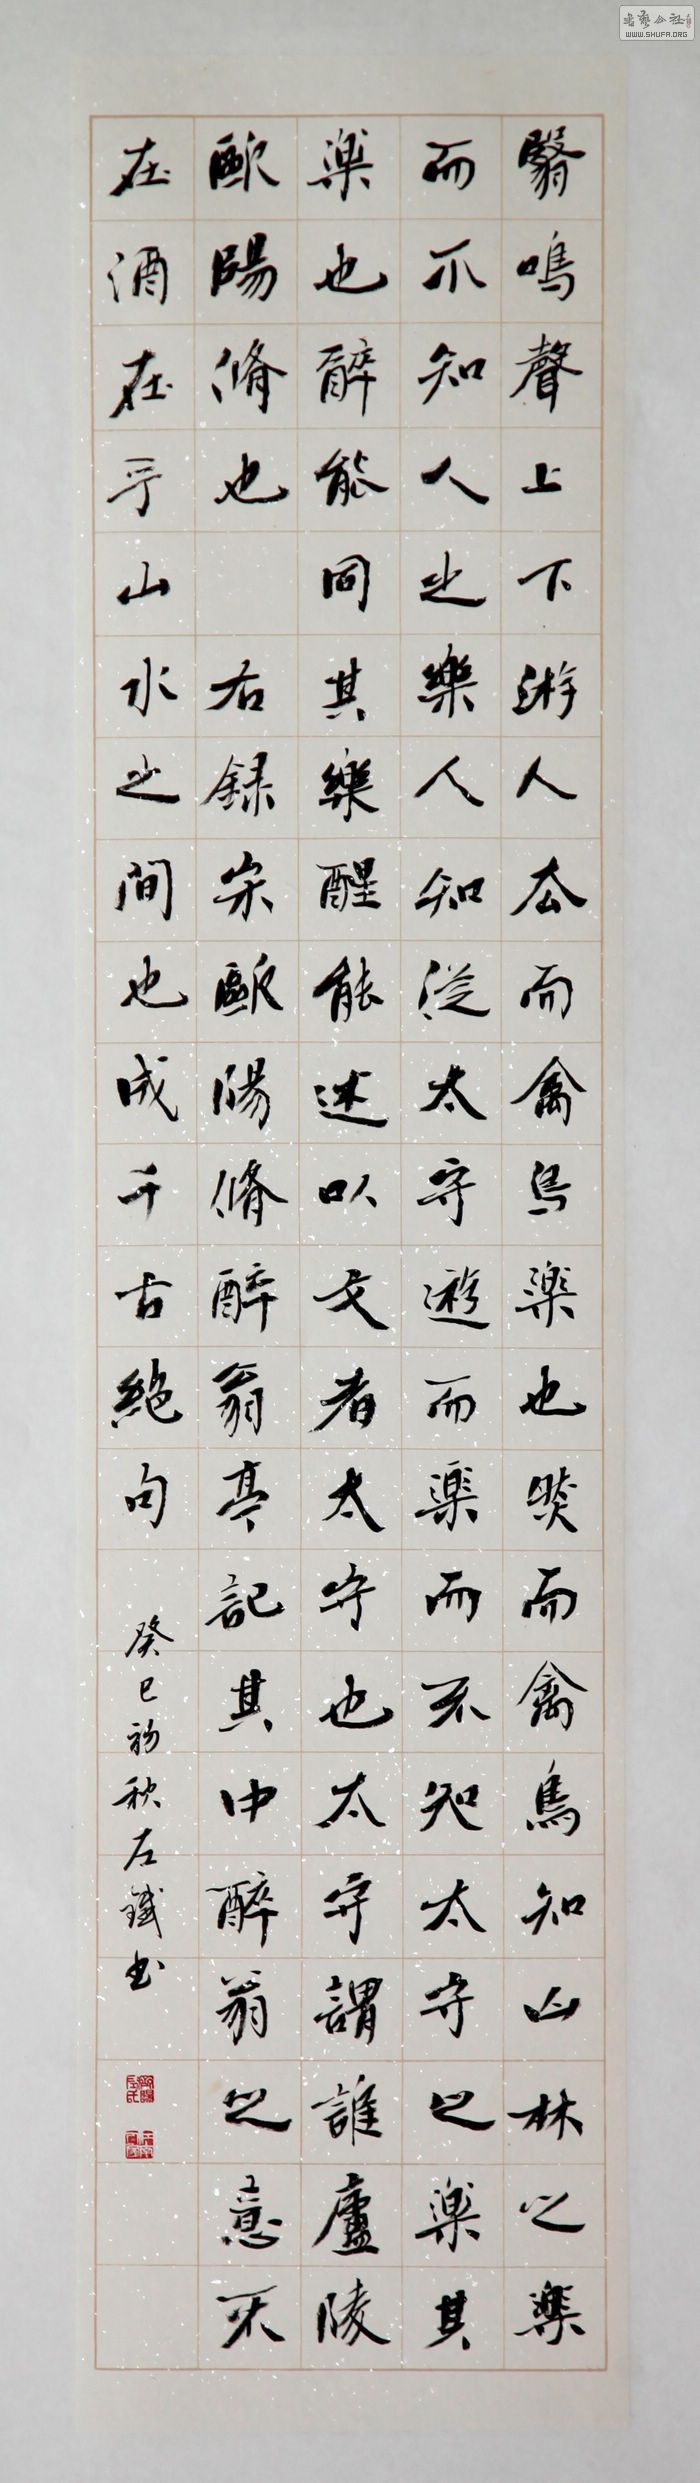 翳鳴聲上下游人去而禽鳥樂也然而禽鳥知山林之樂
而不知人之樂人知從太守遊而樂而不知太守之樂其
樂也醉能同其樂醒能述以文者太守也太守謂誰廬陵
歐陽脩也 右録宋歐陽脩醉翁亭記其中醉翁之意不
在酒在乎山水之間也成千古絶句 癸巳初秋左鐵书
书艺公社
WWW.SHUFA.ORG